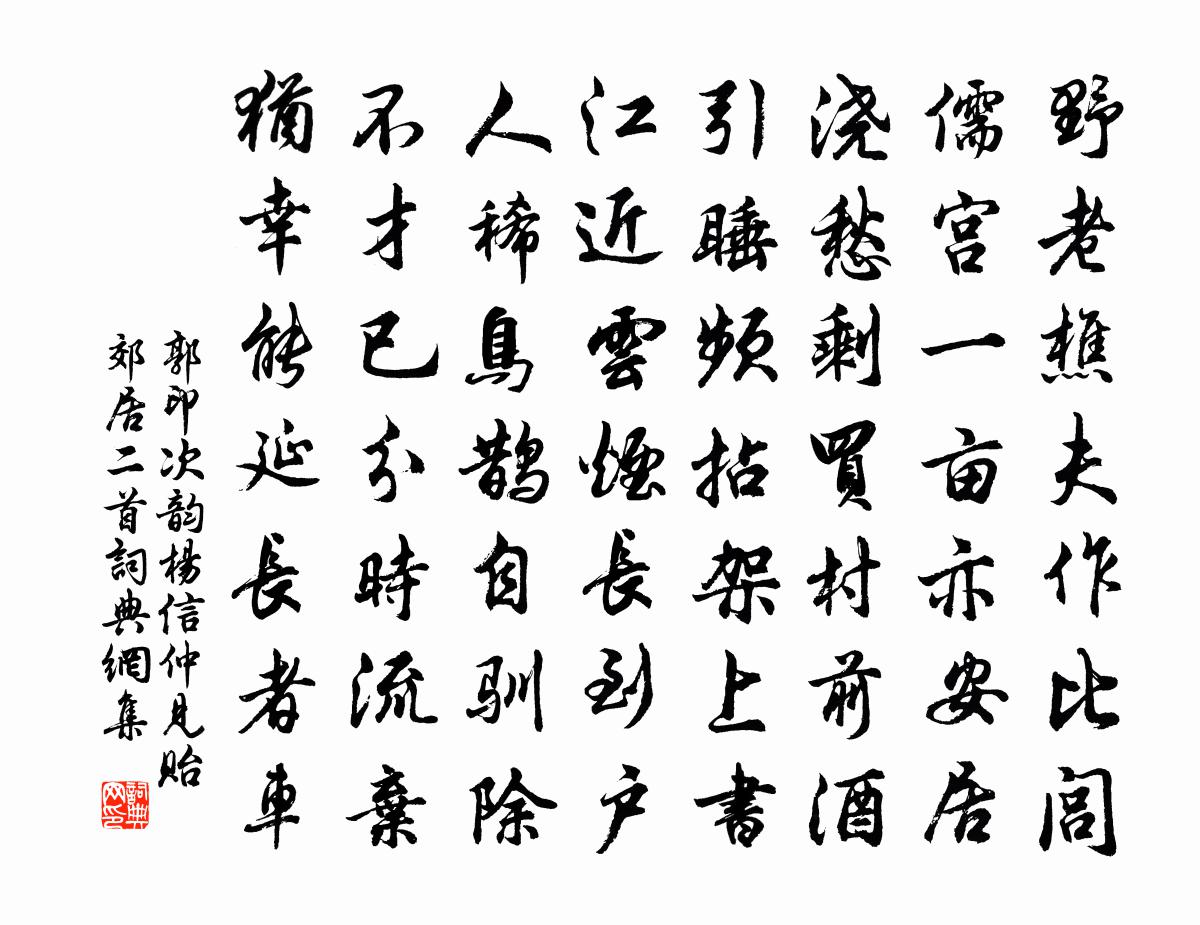 野老樵夫作比閭
儒宮一亩亦安居
浇愁剩買村前酒
引睡頻拈架上書
江近雲煙長到户
人稀鳥鹊自馴除
不才已分時流棄
猶幸能延長者車
郭印次韵楊信仲見貽
郊居二首詞典網集
詞典网印